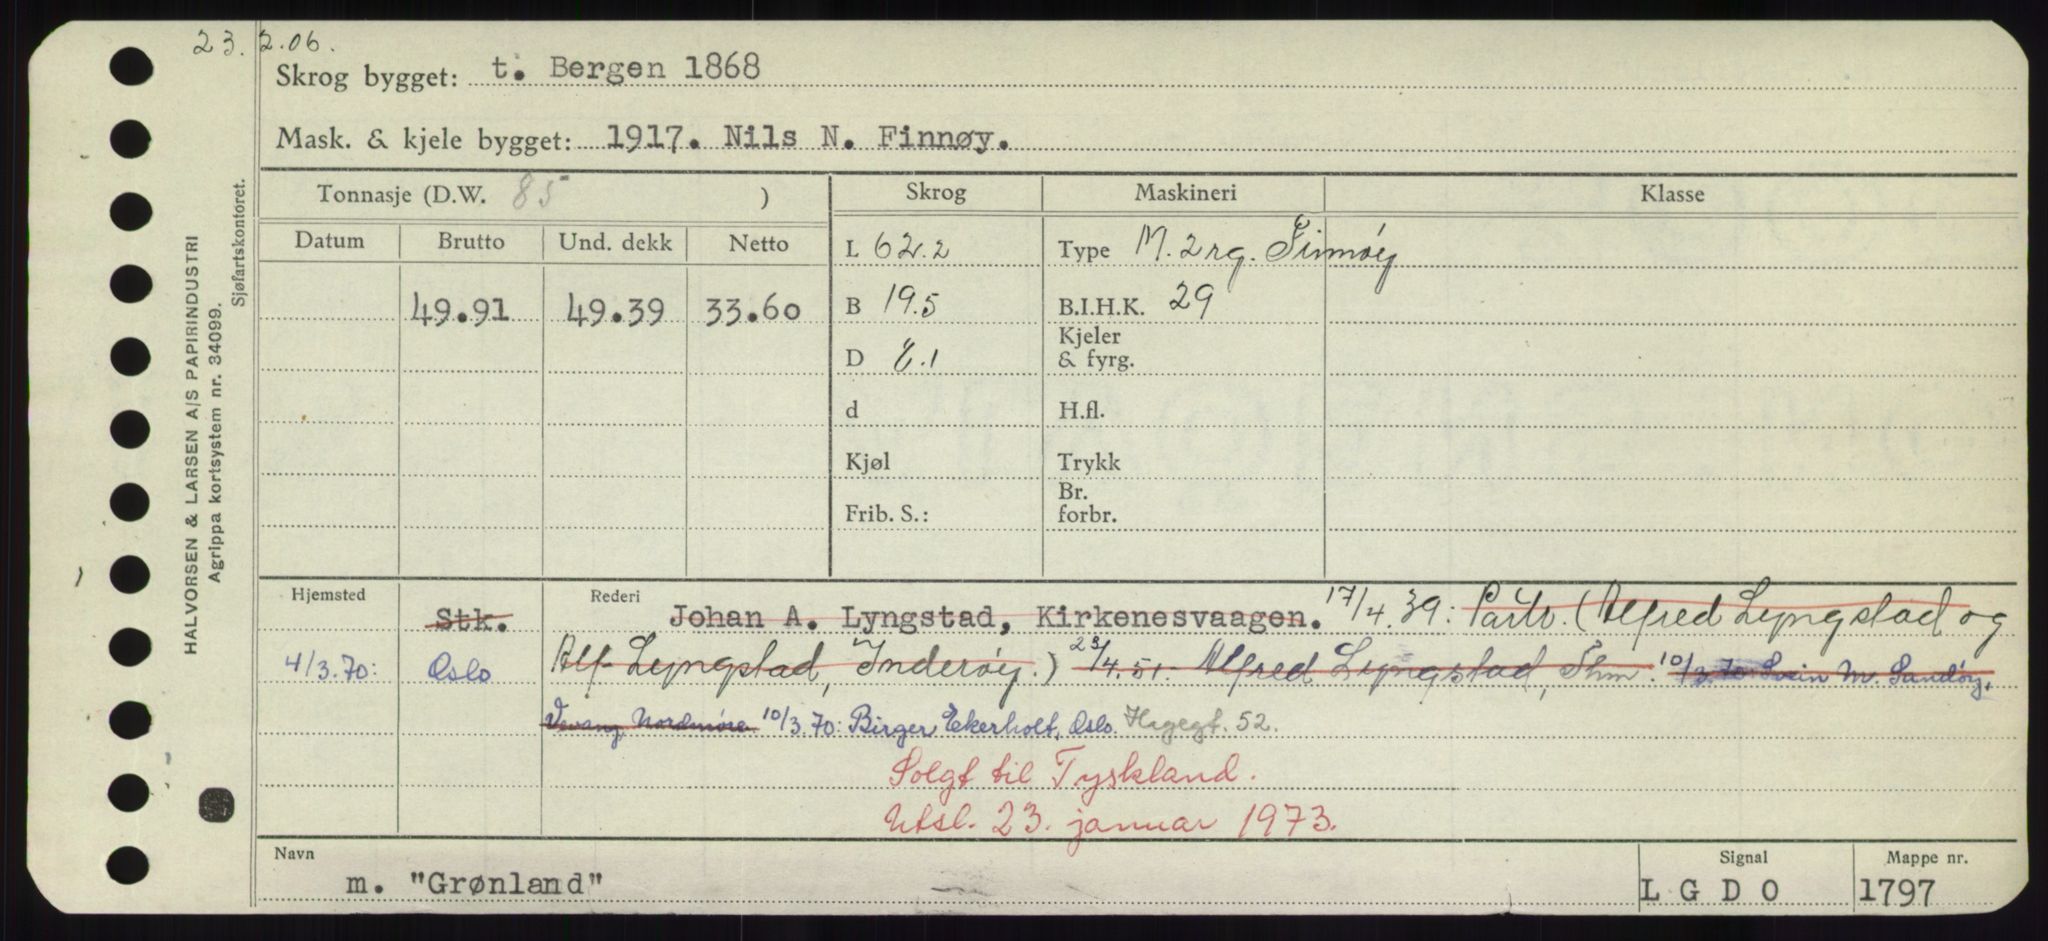 23.2.06.
Skrog bygget: t. Bergen 1868
Mask. & kjele bygget: 1917. Nils N. Finnøy.
HALVORSEN & LARSEN A/S PAPIRINDUSTRI
Agrippa kortsystem nr. 34099.
Sjøfartskontoret.
Tonnasje (D.W. 85 ) Skrog Maskineri Klasse
Datum Brutto Und. dekk Netto
L 62.2 Type M. 2 rg. Finnøy
49.91 49.39 33.60 B 19.5 B.I.H.K. 29
D 8.1 Kjeler & fyrg.
d H.fl.
Kjøl Trykk
Frib. S.: Br. forbr.
Hjemsted Rederi
Stk. Johan A. Lyngstad, Kirkenesvaagen. 17/4.39: Partr. (Alfred Lyngstad og
4/3.70: Oslo Alf Lyngstad, Inderøy.) 23/4.51. Alfred Lyngstad, Thm. 10/3.70: Svein M. Sandøy,
Vevang, Nordmøre 10/3.70: Birger Ekerholt, Oslo. Hagegt. 52.
Solgt til Tyskland.
Utsl. 23. januar 1973.
Navn Signal Mappe nr.
m. "Grønland" L G D O 1797